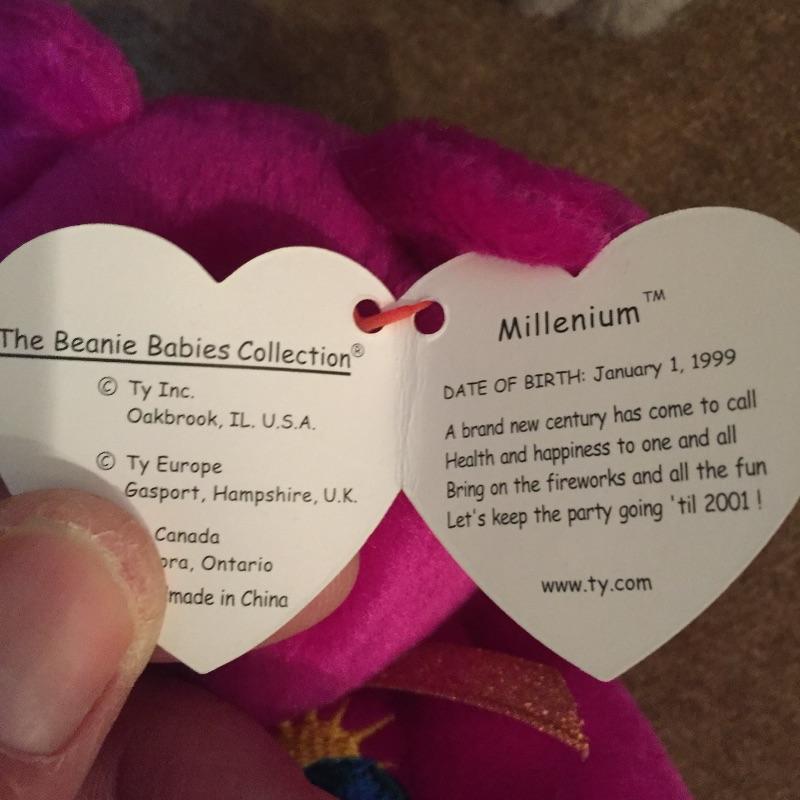 The Beanie Babies Collection®
© Ty Inc.
Oakbrook, IL. U.S.A.
© Ty Europe
Gasport, Hampshire, U.K.
Canada
Ontario
made in China
Millenium™
DATE OF BIRTH: January 1, 1999
A brand new century has come to call
Health and happiness to one and all
Bring on the fireworks and all the fun
Let's keep the party going 'til 2001 !
www.ty.com